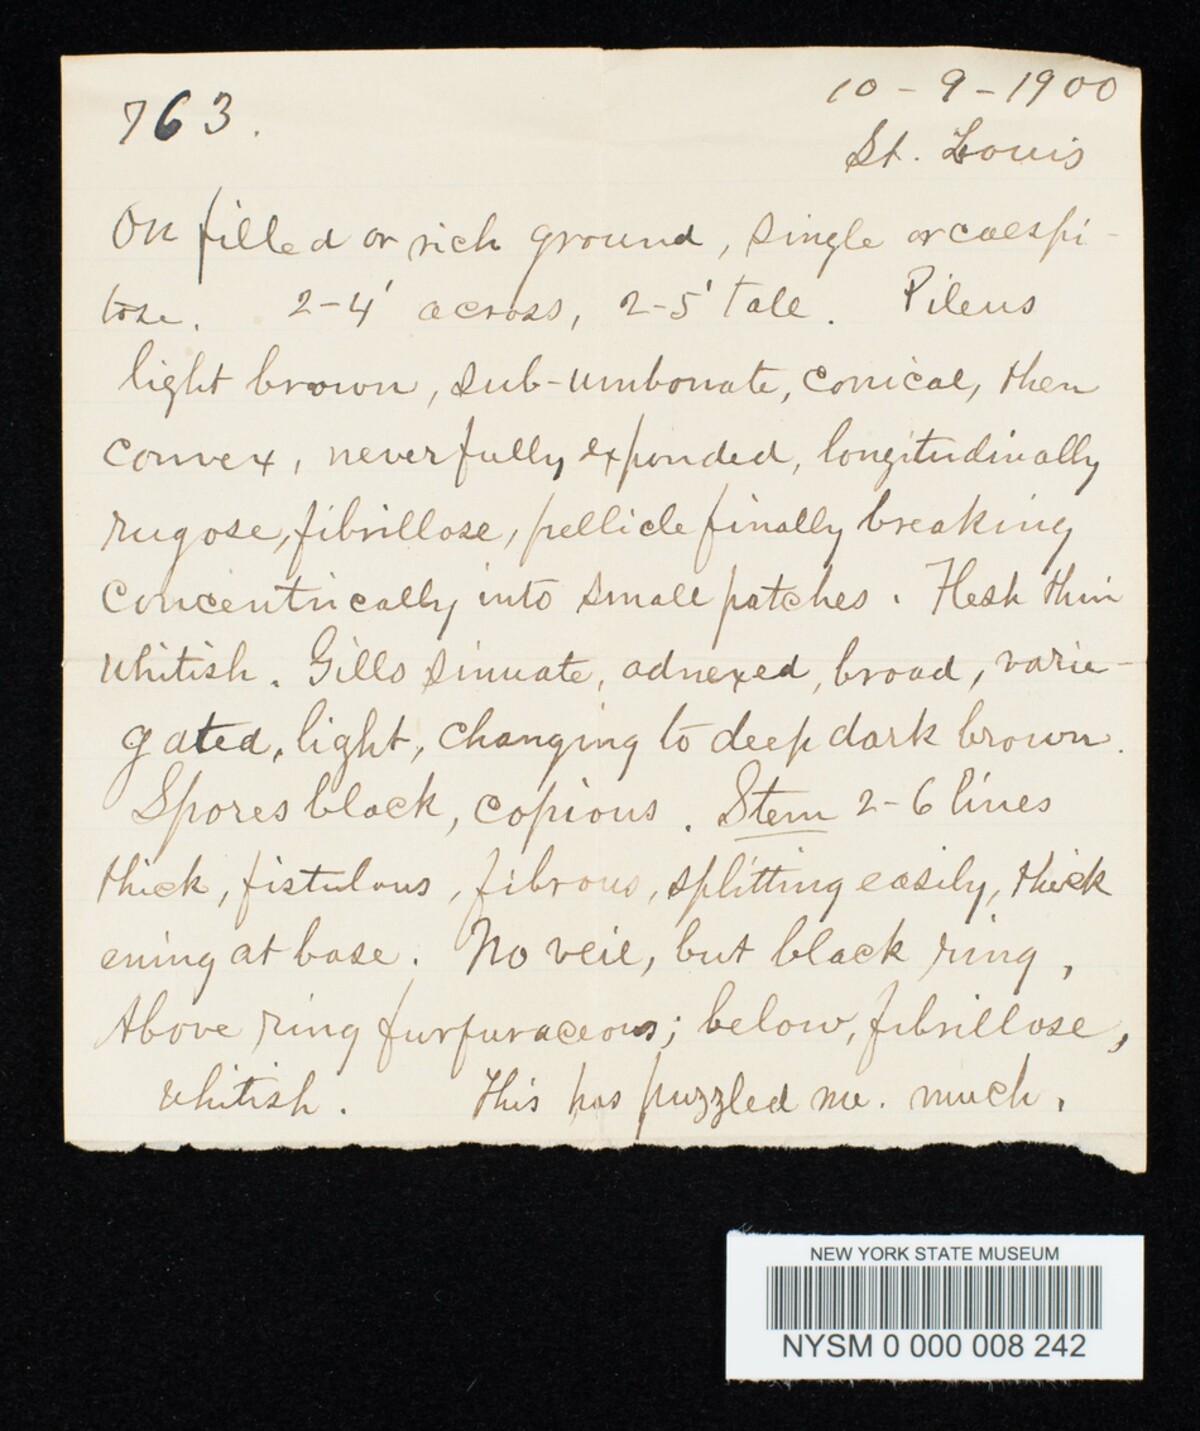 763.
10-9-1900
St. Louis
On filled or rich ground, single or caespi-
tose. 2-4' across, 2-5' tall. Pileus
light brown, sub-umbonate, conical, then
convex, never fully expanded, longitudinally
rugose, fibrillose, pellicle finally breaking
concentrically into small patches. Flesh thin
whitish. Gills sinuate, adnexed, broad, varie-
gated, light, changing to deep dark brown.
Spores black, copious. Stem 2-6 lines
thick, fistulous, fibrous, splitting easily, thick
ening at base. No veil, but black ring,
Above ring furfuraceous; below, fibrillose,
whitish. This has puzzled me. much.
NEW YORK STATE MUSEUM
NYSM 0 000 008 242